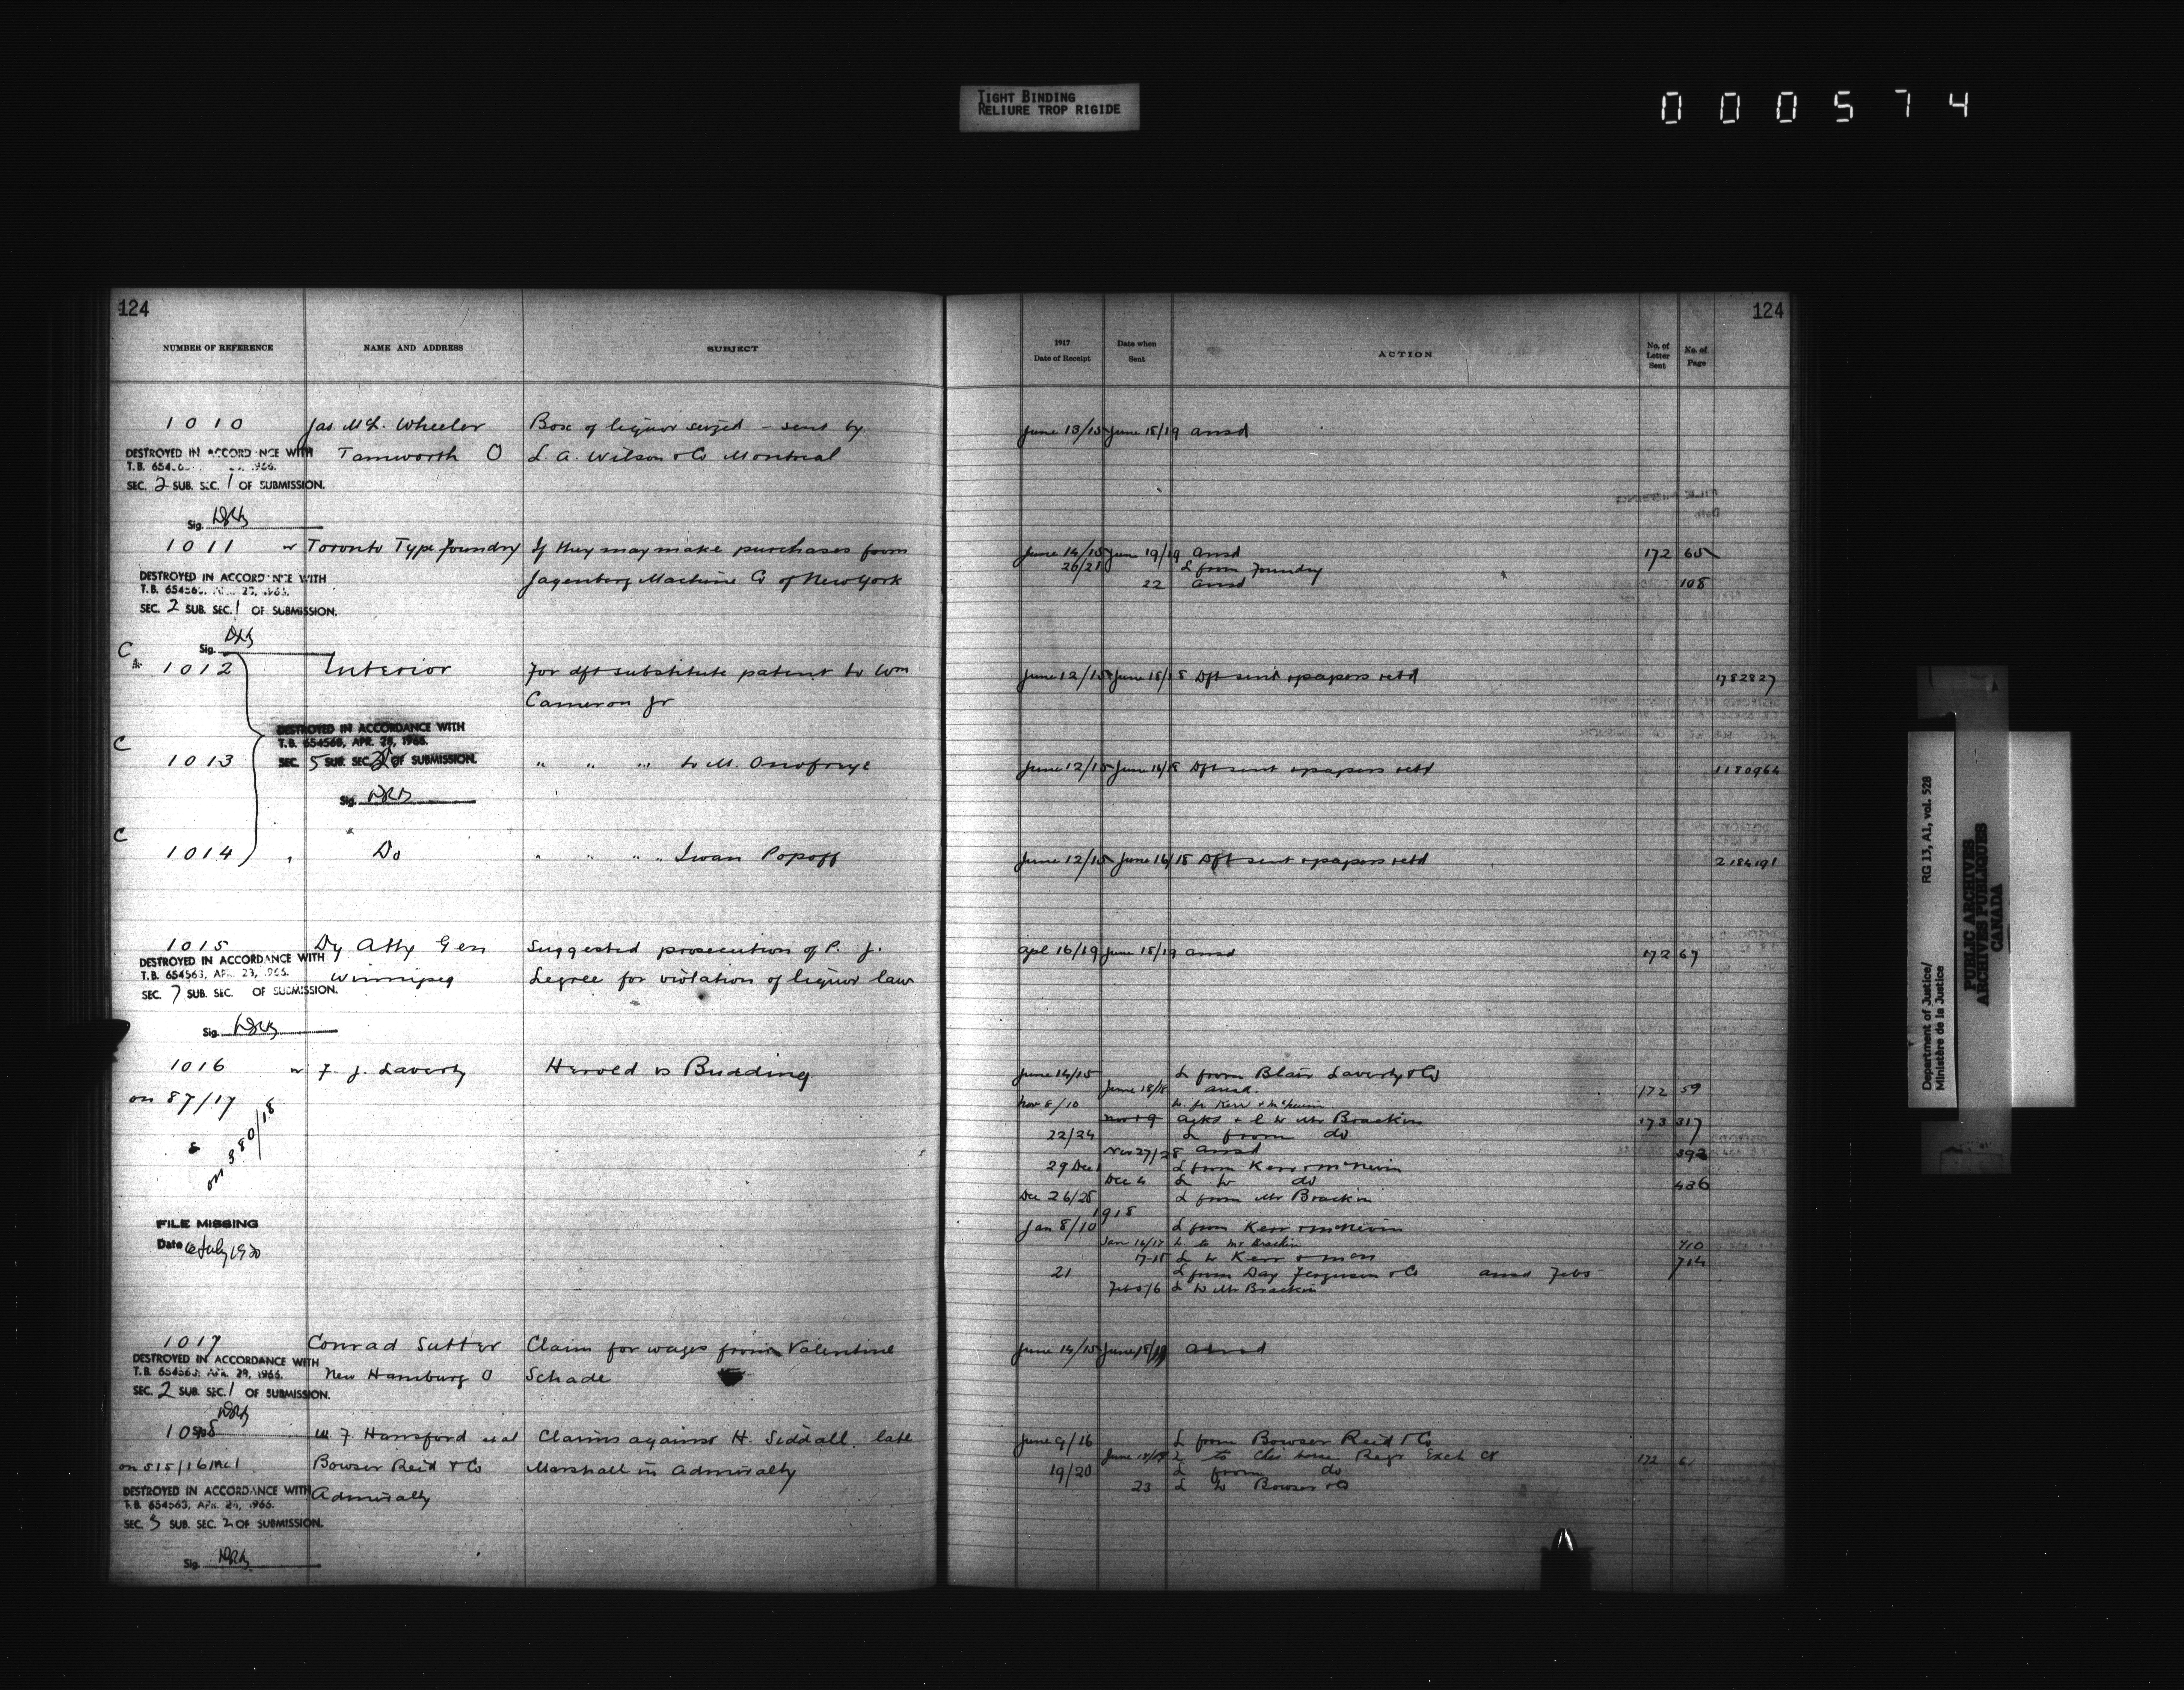 TIGHT BINDING
RELIURE TROP RIGIDE
000574
124
NUMBER OF REFERENCE NAME AND ADDRESS SUBJECT
1010 Jas. McL. Wheeler Box of liquor seized - sent by
DESTROYED IN ACCORDANCE WITH Tamworth O L. A. Wilson & Co Montreal
SEC. 2 SUB. SEC. 1 OF SUBMISSION.
Sig.
1011 Toronto Type Foundry If they may make purchases from
DESTROYED IN ACCORDANCE WITH Jagenberg Machine Co of New York
SEC. 2 SUB. SEC. 1 OF SUBMISSION.
Sig.
C 1012 Interior For dft substitute patent to Wm
Cameron Jr
DESTROYED IN ACCORDANCE WITH
T.B. 654563, APR. 28, 1966.
C 1013 SEC. 5 SUB. SEC. 2 OF SUBMISSION. " " " to M. Onofryc
Sig.
C 1014 Do " " " " Iwan Popoff
1015 Dy Atty Gen Suggested prosecution of P. J.
DESTROYED IN ACCORDANCE WITH Winnipeg Legree for violation of liquor law
SEC. 7 SUB. SEC. OF SUBMISSION.
Sig.
1016 F. J. Laverty Herold vs Budding
on 87/17
& on 380/18
FILE MISSING
Date July 1920
1017 Conrad Sutter Claim for wages from Valentine
DESTROYED IN ACCORDANCE WITH New Hamburg O Schade
SEC. 2 SUB. SEC. 1 OF SUBMISSION.
W. F. Hansford et al Claims against H. Siddall late
on 515/16 Bowser Reid & Co Marshall in Admiralty
DESTROYED IN ACCORDANCE WITH Admiralty
SEC. SUB. SEC. 2 OF SUBMISSION.
Sig.
124
1917
Date of Receipt Date when Sent ACTION No. of Letter Sent No. of Page
June 13/15 June 18/19 ansd
June 14/15 June 19/19 ansd 172 65
20/21 L from Foundry
22 ansd 108
June 12/15 June 18/18 Dft sent & papers retd 1782827
June 12/15 June 16/18 Dft sent & papers retd 1180964
June 12/15 June 16/18 Dft sent & papers retd 2184191
Apl 16/19 June 18/19 ansd 172 67
June 14/15 L from Blair Laverty & Co
June 18/18 ansd. 172 59
Nov 8/10
Nov 19 Ackd & L to Mr Brackin 173 317
22/24 L from do
Nov 27/28 ansd 392
29 Dec 1 L from Kerr & McNevin
Dec 4 L to do 436
Dec 26/28 L from Mr Brackin
1918
Jan 8/10 L from Kerr & McNevin
Jan 16/17 L to Mr Brackin 710
17-18 L to Kerr & 714
21 L from Day Ferguson & Co ansd Feb 5
Feb 5/6 L to Mr Brackin
June 14/15 June 18/19 ansd
June 9/16 L from Bowser Reid & Co
L to Regr Exch Ct 172
19/20 L from do
23 L to Bowser & Co
Department of Justice/ RG 13, A1, vol. 528
Ministère de la Justice
PUBLIC ARCHIVES
ARCHIVES PUBLIQUES
CANADA